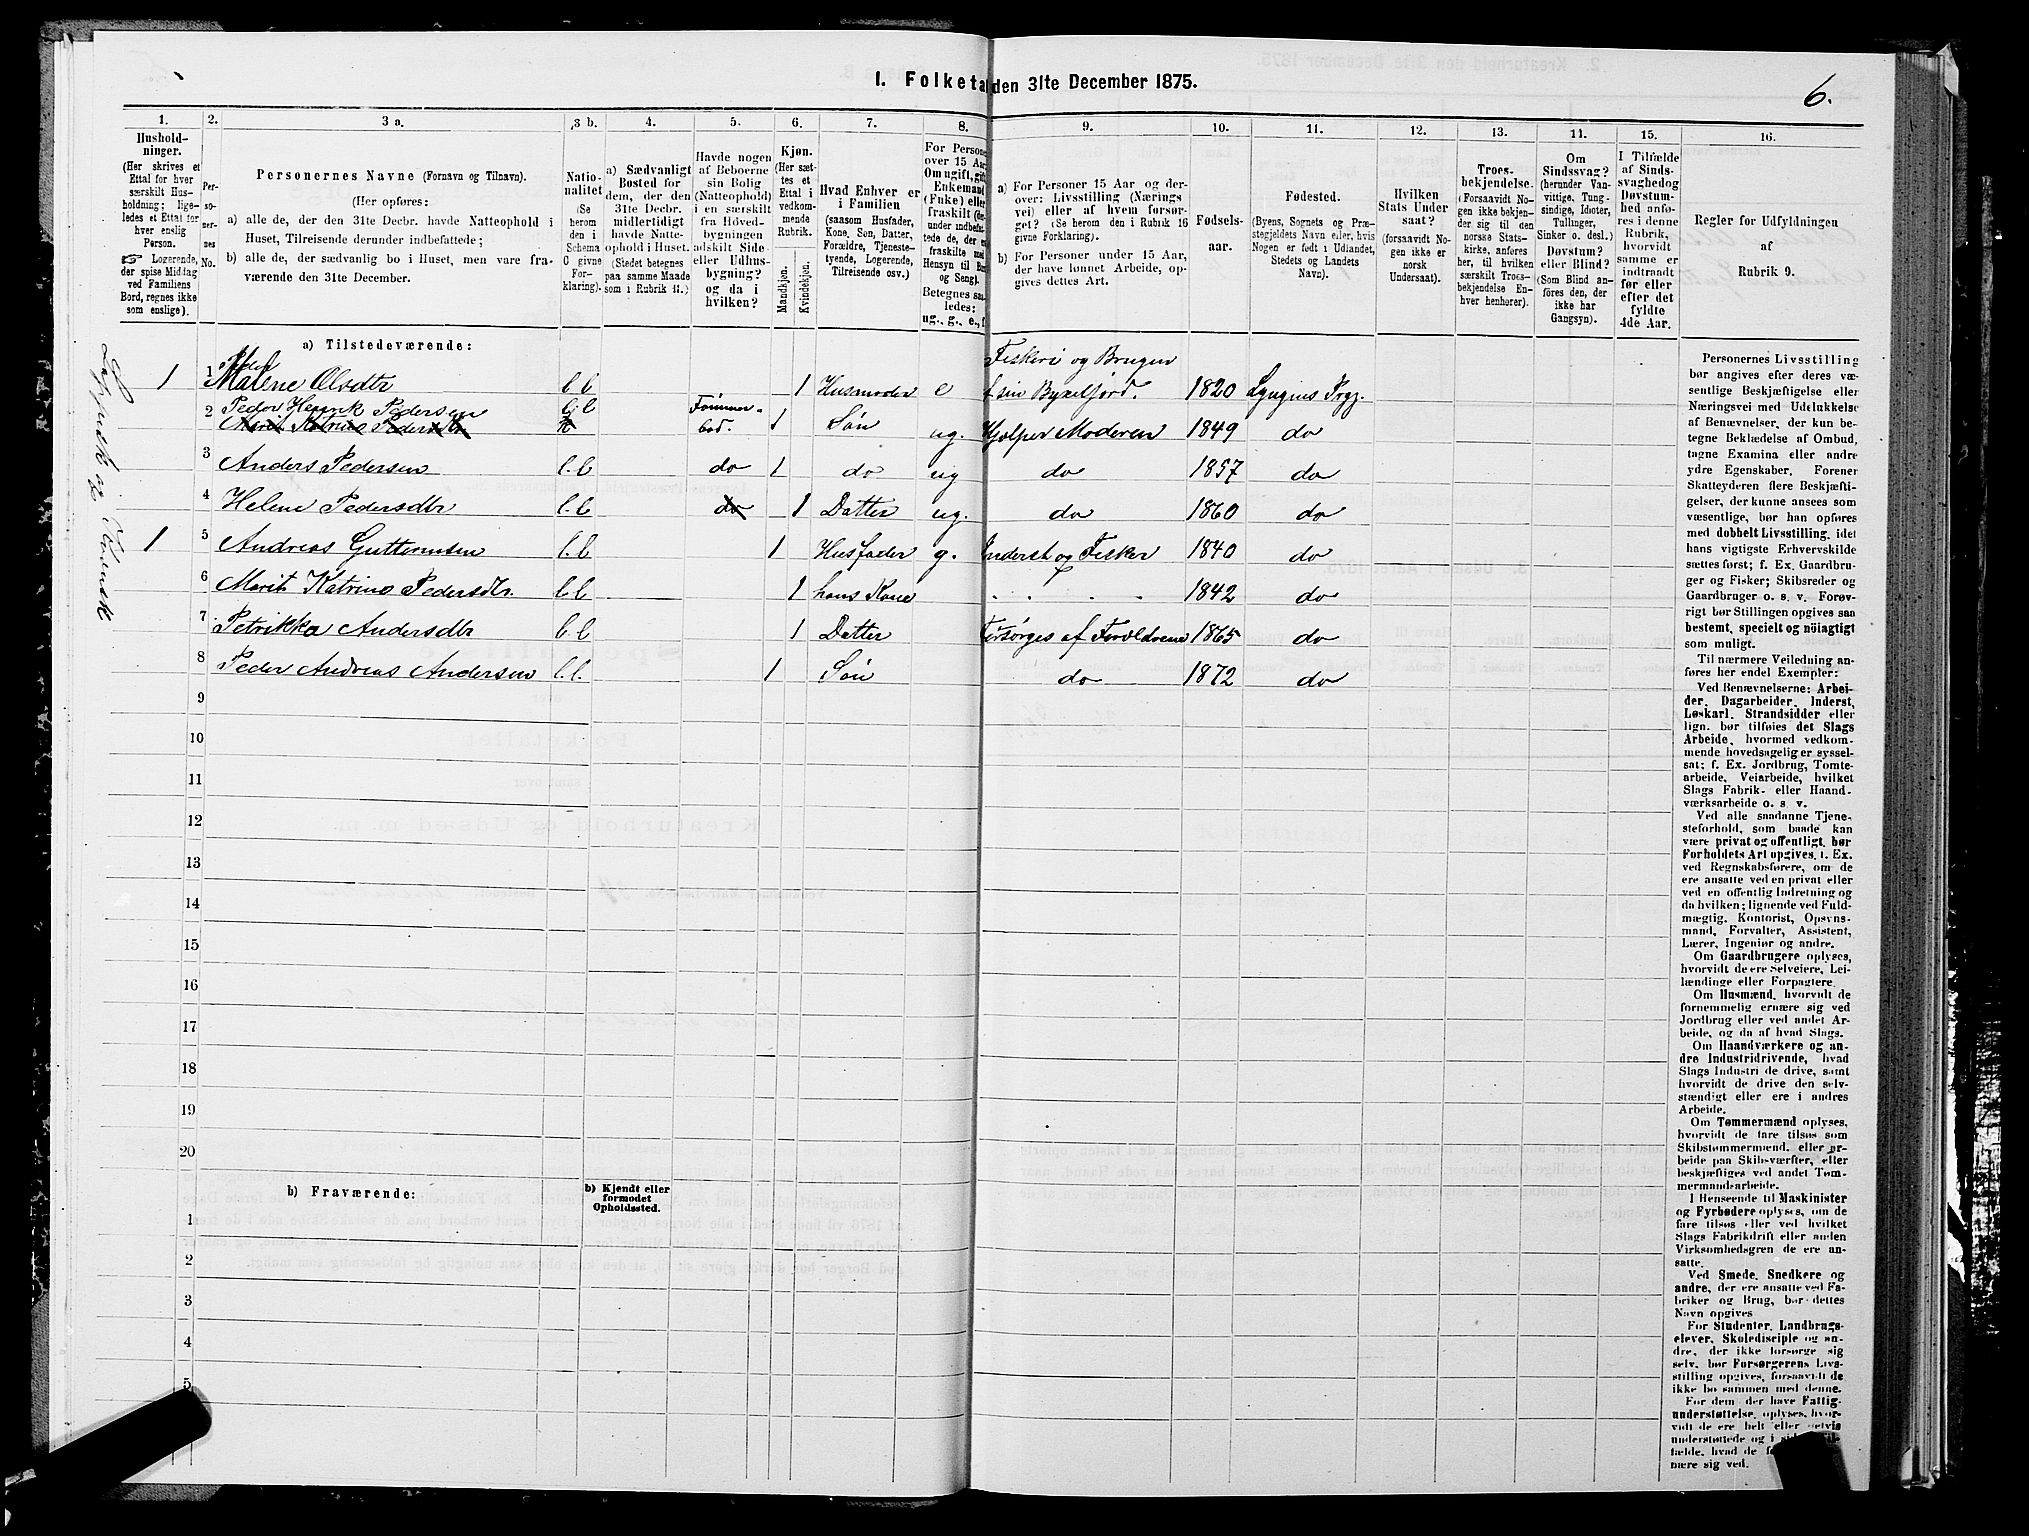 I. Folketa den 31te December 1875.
6.
1.
Hushold-
ninger.
(Her skrives et
Ettal for hver
særskilt Hus-
holdning; lige-
ledes et Ettal for
hver enslig
Person.
Logerende,
der spise Middag
ved Familiens
Bord, regnes ikke
som enslige).
2.
Per-
so-
ner-
nes
No.
3 a.
Personernes Navne (Fornavn og Tilnavn).
(Her opføres:
a) alle de, der den 31te Decbr. havde Natteophold i
Huset, Tilreisende derunder indbefattede;
b) alle de, der sædvanlig bo i Huset, men vare fra-
værende den 31te December.
3 b.
Natio-
nalitet
(Se
herom
den i
Schema
C givne
For-
klaring).
4.
a) Sædvanligt
Bosted for
dem, der den
31te Decbr.
midlertidigt
havde Natte-
ophold i Huset.
(Stedet betegnes
paa samme Maade
som i Rubrik 11.)
5.
Havde nogen
af Beboerne
sin Bolig
(Natteophold)
i en særskilt
fra Hoved-
bygningen
adskilt Side-
eller Udhus-
bygning?
og da i
hvilken?
6.
Kjøn.
(Her sæt-
tes et
Ettal i
vedkom-
mende
Rubrik.
Mandkjøn.
Kvindekjøn.
7.
Hvad Enhver er
i Familien
(saasom Husfader,
Kone, Søn, Datter,
Forældre, Tjeneste-
tyende, Logerende,
Tilreisende osv.)
8.
For Persone
over 15 Aar
Om ugift, gift,
Enkemand
(Enke) eller
fraskilt
Betegnes saa-
ledes:
ug., g., e., f.
9.
a) For Personer 15 Aar og der-
over: Livsstilling (Nærings
vei) eller af hvem forsør-
get? (Se herom den i Rubrik 16
givne Forklaring).
b) For Personer under 15 Aar,
der have lønnet Arbeide, op-
gives dettes Art.
10.
Fødsels-
aar.
11.
Fødested.
(Byens, Sognets og Præ-
stegjeldets Navn eller, hvis
Nogen er født i Udlandet,
Stedets og Landets
Navn).
12.
Hvilken
Stats Under
saat?
(forsaavidt No-
gen ikke er
norsk
Undersaat).
13.
Troes-
bekjendelse.
(Forsaavidt No-
gen ikke bekjen-
der sig til den
norske Stats-
kirke, anføres
her, til hvilken
særskilt Troes-
bekjendelse En-
hver henhører).
11.
Om
Sindssvag?
(herunder Van-
vittige, Tung-
sindige, Idioter,
Tullinger,
Sinker o. desl.)
Døvstum?
eller Blind?
(Som Blind an-
føres den, der
ikke har
Gangsyn).
15.
I Tilfælde
af Sinds-
svaghed og
Døvstum-
hed anfø-
res i denne
Rubrik,
hvorvidt
samme er
indtraadt
før eller
efter det
fyldte
4de Aar.
16.
Regler for Udfyldningen
af
Rubrik 9.
a) Tilstedeværende:
Fiskeri og Brugen
1 1 Malene Olsdtr l.l 1 Husmoder e f sin Byxelfjord. 1820 Lyngens Prgj.
2 Peder Henrik Pedersen l.l Tømmer-
Marit Katrine Pedersdtr bod. 1 Søn ug. Hjælper Moderen 1849 do
3 Anders Pedersen l.l do 1 do ug do 1857 do
4 Helene Pedersdtr l.l do 1 Datter ug. do 1860 do
1 5 Andreas Guttormsen l.l 1 Husfader g. Inderst og Fisker 1840 do
6 Marit Katrine Pedersdtr. l.l 1 hans Kone 1842 do
7 Petrikka Andersdtr l.l 1 Datter Forsørges af Forældrene 1865 do
8 Peder Andreas Andersen l.l. 1 Søn do 1872 do
9
10
11
12
13
14
15
16
17
18
19
20
b) Fraværende:
b) Kjendt eller
formodet
Opholdssted.
1
2
3
4
5
Personernes Livsstilling
bør angives efter deres væ-
sentlige Beskjæftigelse eller
Næringsvei med Udelukkelse
af Benævnelser, der kun be-
tegne Beklædelse af Ombud,
tagne Examina eller andre
ydre Egenskaber. Forener
Skatteyderen flere Beskjæfti-
gelser, der kunne ansees som
væsentlige, bør han opføres
med dobbelt Livsstilling, idet
hans vigtigste Erhvervskilde
sættes først; f. Ex. Gaardbru-
ger og Fisker; Skibsreder og
Gaardbruger o. s. v. Forøv-
rigt bør Stillingen opgives saa
bestemt, specielt og nöiagtigt
som muligt.
Til nærmere Veiledning an-
føres her endel Exempler:
Ved Benævnelserne: Arbei-
der, Dagarbeider, Inderst,
Løskarl, Strandsidder eller
lign. bør tilføies det Slags
Arbeide, hvormed vedkom-
mende hovedsagelig er syssel-
sat; f. Ex. Jordbrug, Tomte-
arbeide, Veiarbeide, hvilket
Slags Fabrik- eller Haand-
værksarbeide o. s. v.
Ved alle saadanne Tjene-
steforhold, som baade kan
være privat og offentligt, bør
Forholdets Art opgives, f. Ex.
ved Regnskabsførere, om de
ere ansatte ved en privat eller
ved en offentlig Indretning og
da hvilken; lignende ved Fuld-
mægtig, Kontorist, Opsyns-
mand, Forvalter, Assistent,
Lærer, Ingeniør og andre.
Om Gaardbrugere oplyses,
hvorvidt de ere Selveiere, Lei-
lændinge eller Forpagtere.
Om Husmænd, hvorvidt de
fornemmelig ernære sig ved
Jordbrug eller ved andet Ar-
beide, og da af hvad Slags.
Om Haandværkere og an-
dre Industridrivende, hvad
Slags Industri de drive, samt
hvorvidt de drive den selv-
stændigt eller ere i andres
Arbeide.
Om Tømmermænd oplyses,
hvorvidt de fare tilsøs som
Skibstømmermænd, eller ar-
beide paa Skibsværfter, eller
beskjæftiges ved andet Tøm-
mermandarbeide.
I Henseende til Maskinister
og Fyrbødere oplyses, om de
fare tilsøs eller ved hvilket
Slags Fabrikdrift eller anden
Virksomhedsgren de ere an-
satte.
Ved Smede, Snedkere og
andre, der ere ansatte ved Fa-
briker og Brug, bør dettes
Navn opgives
For Studenter, Landbrugs-
elever, Skoledisciple og an-
dre, der ikke forsørge sig
selv, bør Forsørgerens Livs-
stilling opgives, forsaavidt de
ikke bo sammen med denne.
For dem, der have Fattig-
understøttelse, oplyses, hvor-
vidt de ere helt eller delvis
understøttede og i
fælde, hvad de
nære sig ved.